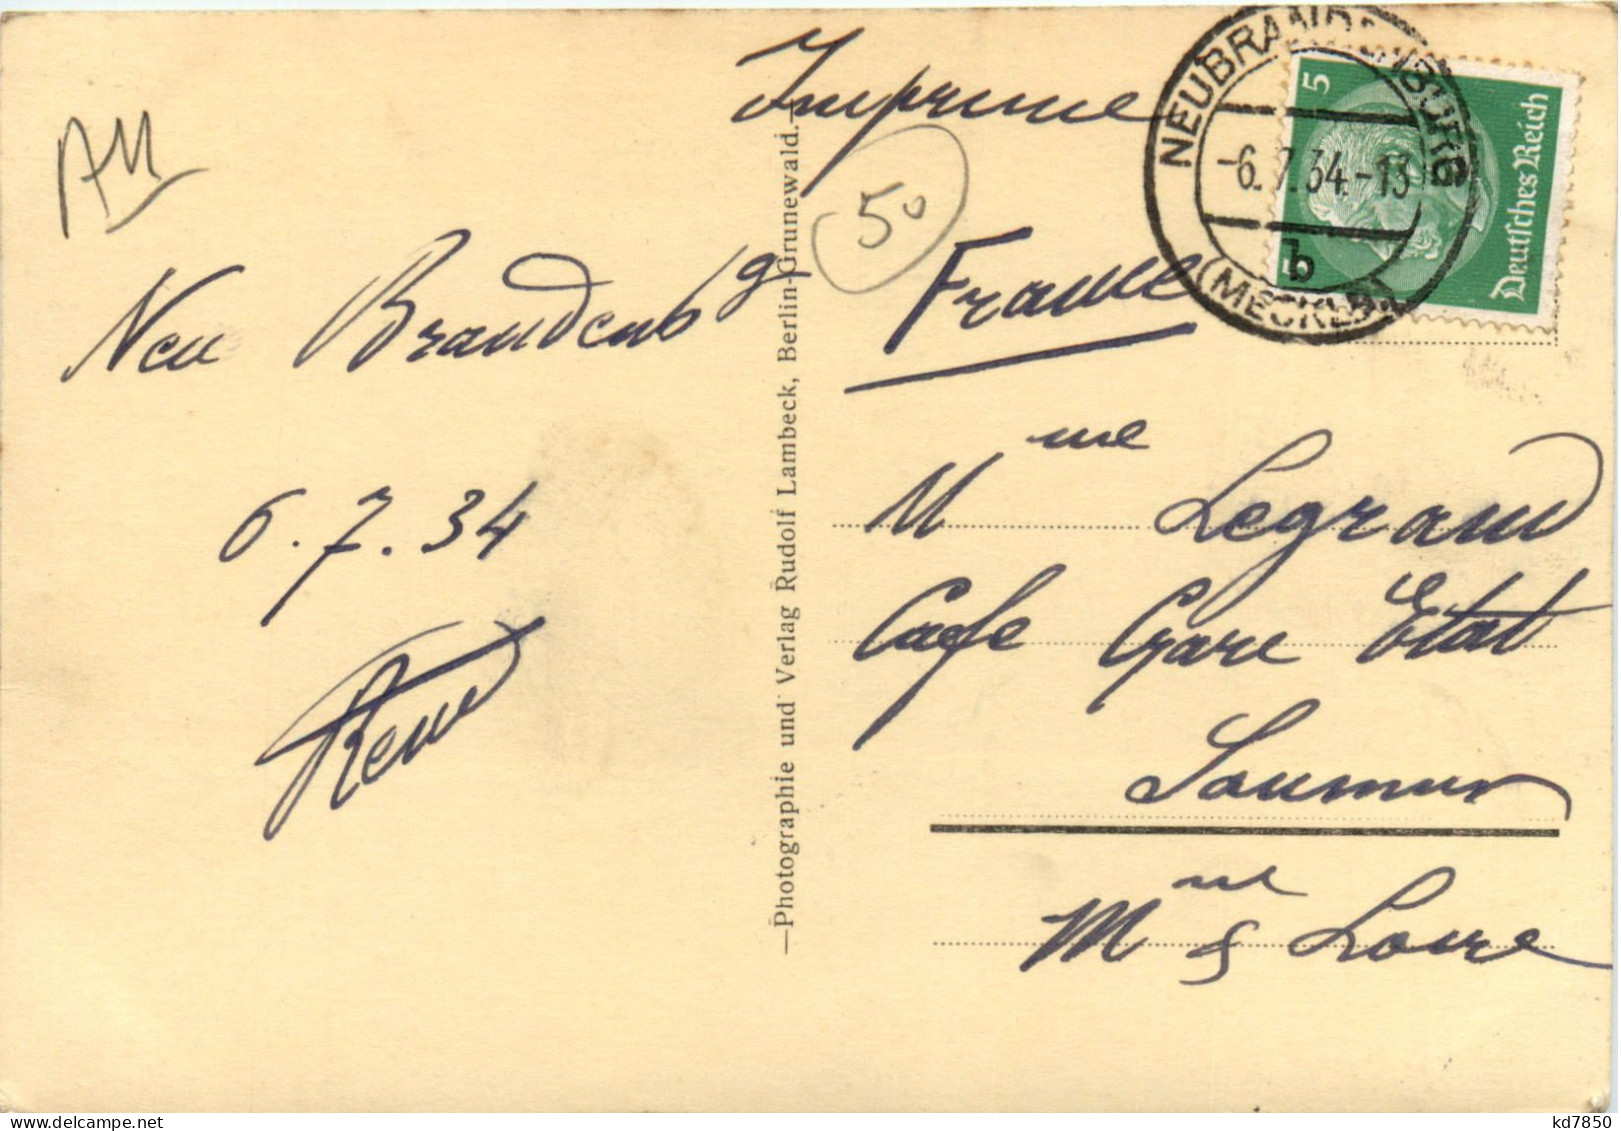 AM
Neu Brandenbg
6.7.34
René
—Photographie und Verlag Rudolf Lambeck, Berlin-Grunewald.—
Imprime
50
France
NEUBRANDENBURG
-6.7.34.-13
b
(MECKLB)
5
5
Deutsches Reich
Mme Legrand
Cafe Gare Etat
Saumur
Mne & Loire
kd7850